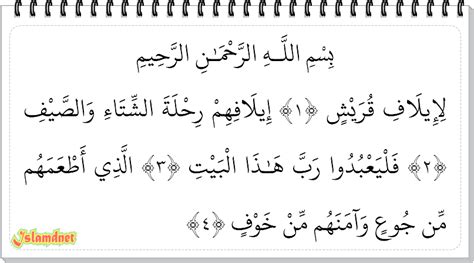 بِسْمِ اللَّـهِ الرَّحْمَـٰنِ الرَّحِيمِ
لِإِيلَافِ قُرَيْشٍ ﴿١﴾ إِيلَافِهِمْ رِحْلَةَ الشِّتَاءِ وَالصَّيْفِ
﴿٢﴾ فَلْيَعْبُدُوا رَبَّ هَـٰذَا الْبَيْتِ ﴿٣﴾ الَّذِي أَطْعَمَهُم
مِّن جُوعٍ وَآمَنَهُم مِّنْ خَوْفٍ ﴿٤﴾
Islamdnet